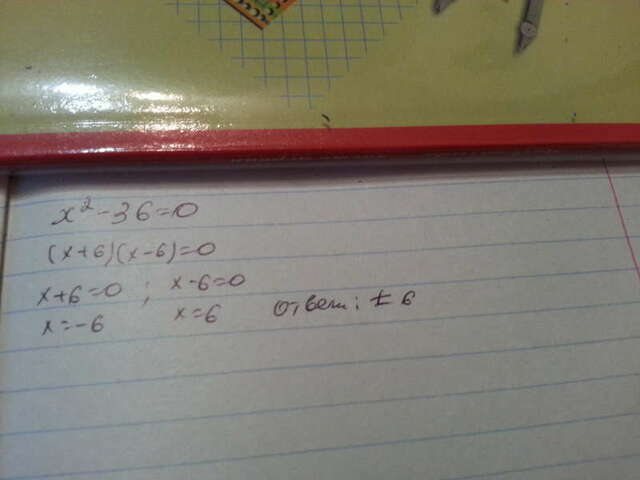 x² - 36 = 0
(x + 6)(x - 6) = 0
x + 6 = 0 ; x - 6 = 0
x = -6 x = 6 Ответ: ± 6